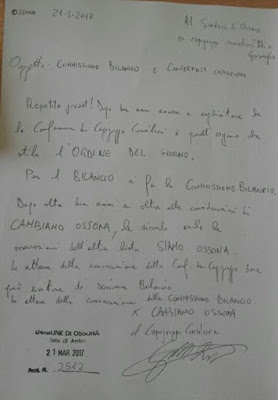 OSSONA 21-3-2017
Al Sindaco di Ossona
ai capigruppo
Oggetto: COMMISSIONE BILANCIO e CONFERENZA CAPIGRUPPO
Dopo tre anni ancora a
la Conferenza dei Capigruppo Consiliari è quell'organo che
stila l'ORDINE DEL GIORNO.
Per il BILANCIO si fa la COMMISSIONE BILANCIO.
Dopo oltre tre anni e oltre alle
CAMBIANO OSSONA, le ricordo anche le
dell'altra lista SIAMO OSSONA.
In attesa della convocazione della Conf. dei Capigruppo dove
può evitare di scrivere Bilancio
In attesa della convocazione della COMMISSIONE BILANCIO
X CAMBIANO OSSONA
il Capogruppo Consiliare
COMUNE DI OSSONA
21 MAR 2017
Prot. N. 2512